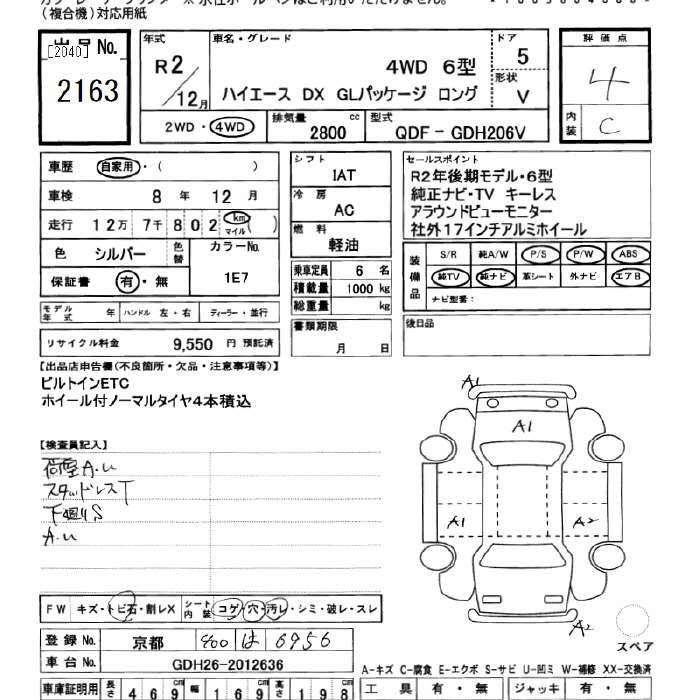 (複合機)対応用紙
出品No.
[2040]
2163
年式
R2/12月
車名・グレード
4WD 6型
ハイエース DX GLパッケージ ロング
ドア
5
形状
V
評価点
4
内装
C
2WD・4WD
排気量
2800 cc
型式
QDF-GDH206V
車歴 自家用・( )
車検 8年 12月
走行 12万7千802 km マイル ( )
色 シルバー 色替 カラーNo.
1E7
保証書 有・無
モデル年式 年 ハンドル 左・右 ディーラー・並行
リサイクル料金 9,550 円 預託済
シフト
IAT
冷房
AC
燃料
軽油
乗車定員 6 名
積載量 1000 kg
総重量 kg
書類期限
月 日
セールスポイント
R2年後期モデル・6型
純正ナビ・TV キーレス
アラウンドビューモニター
社外17インチアルミホイール
装備品
S/R 純A/W P/S P/W ABS
純TV 純ナビ 革シート 外ナビ エアB
ナビ型番:
後日品
【出品店申告欄(不良箇所・欠品・注意事項等)】
ビルトインETC
ホイール付ノーマルタイヤ4本積込
【検査員記入】
荷室A.U
スタッドレスT
下廻りS
A.U
A1
A1
A1
A2
A2
スペア
FW キズ・トビ石・割レX シート内装 コゲ・穴・汚レ・シミ・破レ・スレ
登録No. 京都 400 は 6956
車台No. GDH26-2012636
A-キズ C-腐食 E-エクボ S-サビ U-凹ミ W-補修 XX-交換済
車庫証明用 長さ 469 cm 幅 169 cm 高さ 198 cm
工具 有・無 ジャッキ 有・無